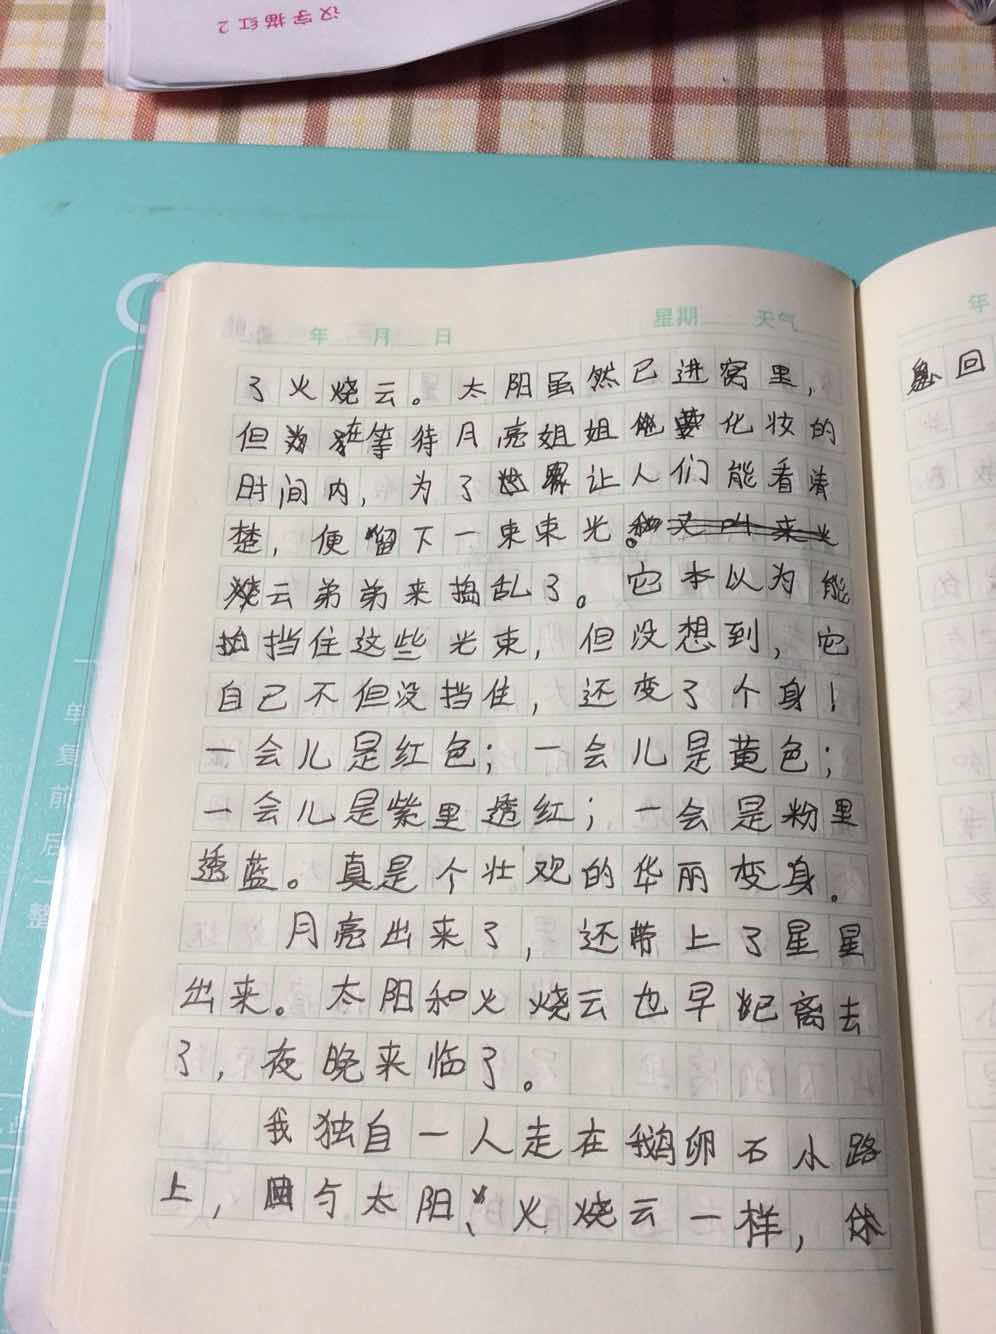 汉字描红2
年 月 日 星期 天气
了火烧云。太阳虽然已进窝里，
但在等待月亮姐姐化妆的
时间内，为了让人们能看清
楚，便留下一束束光。
烧云弟弟来捣乱了。它本以为能
挡住这些光束，但没想到，它
自己不但没挡住，还变了个身！
一会儿是红色；一会儿是黄色；
一会儿是紫里透红；一会是粉里
透蓝。真是个壮观的华丽变身。
月亮出来了，还带上了星星
出来。太阳和火烧云也早已离去
了，夜晚来临了。
我独自一人走在鹅卵石小路
上，与太阳、火烧云一样，休
年
息回
单
复
前
后
整